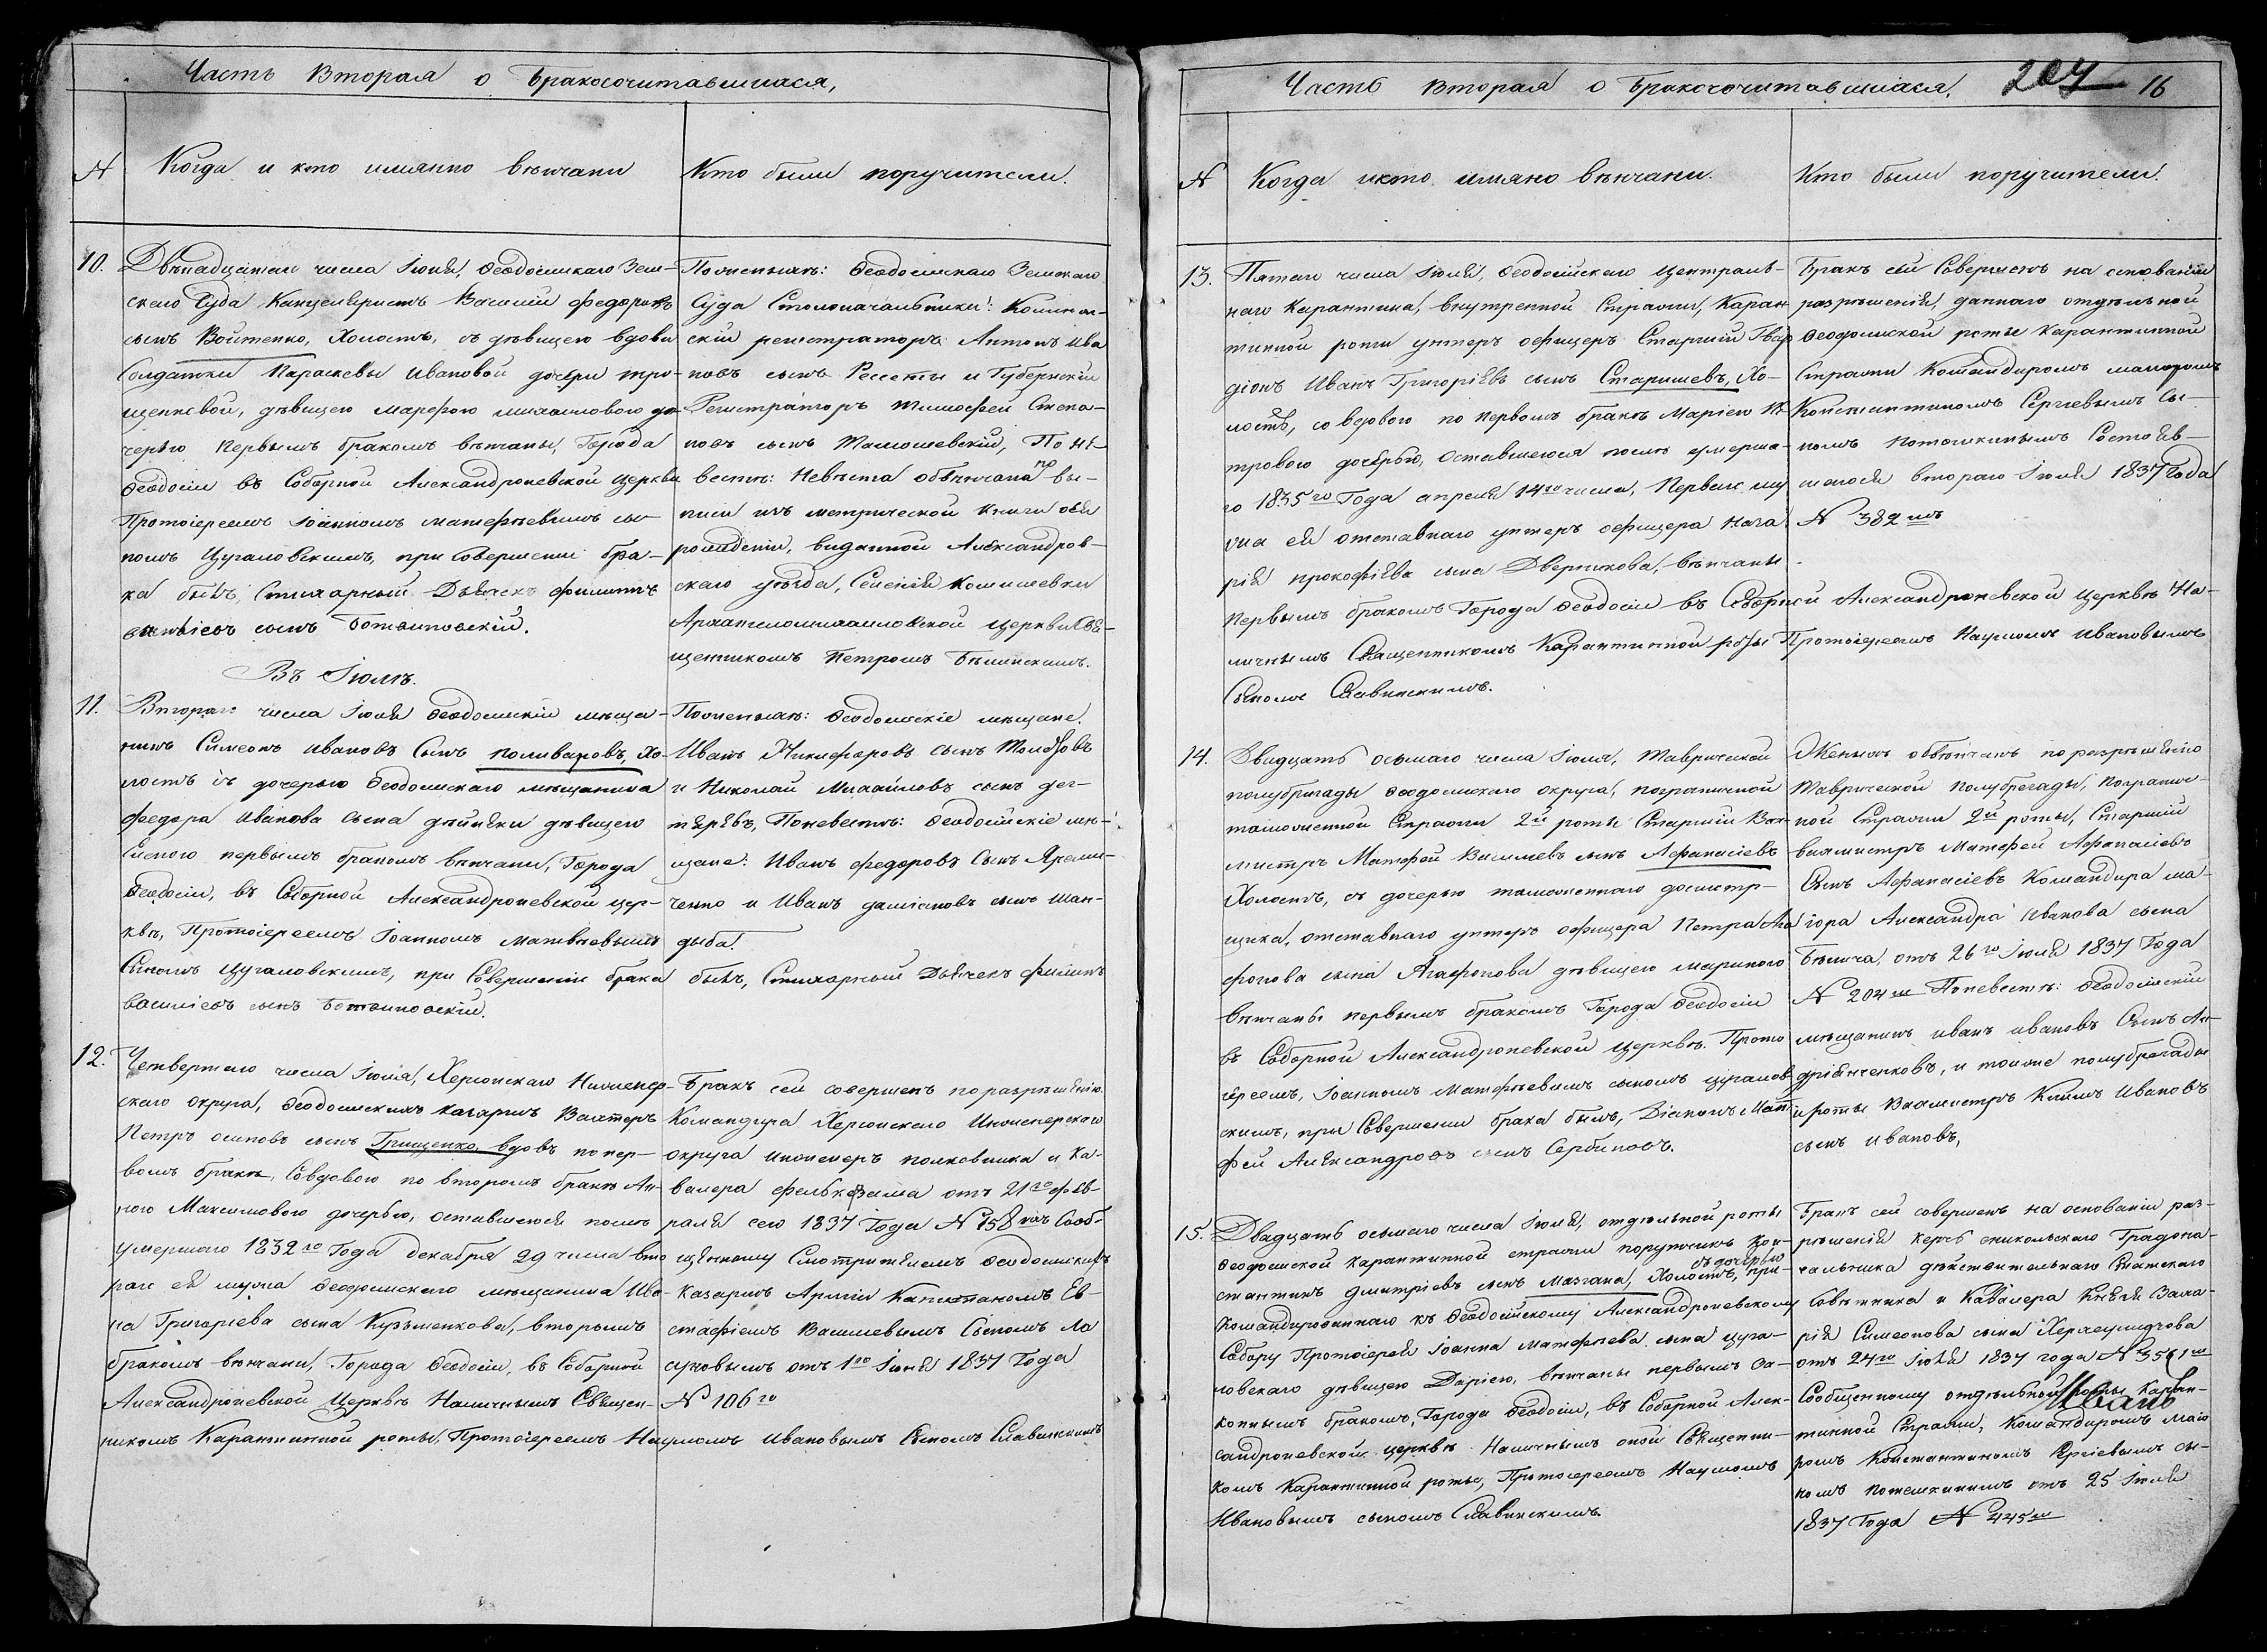 Часть Вторая о Бракосочитавшихся,
№
Когда и кто имянно вѣнчани
Кто были поручители.
10.
Двѣнадцатаго числа Іюня, Ѳеодосійскаго Зем-
скаго Суда Канцеляристъ Василій Федоровъ
сынъ Войтенко, Холостъ, съ дѣвицею вдовы
Солдатки Параскевы Ивановой дочери
дѣвицею Марѳою Михаиловою до-
черью Первымъ бракомъ вѣнчаны, Города
Ѳеодосіи въ Соборной Александроневской церкви
Протоіереемъ Іоанномъ Матфѣевымъ сы-
номъ Цугаловскимъ, при совершеніи бра-
ка былъ, Стихарный Дьячекъ Филиппъ
сынъ
Поженихѣ: Ѳеодосійскаго Земскаго
Суда Столоначальники: Колеж-
скій регистраторъ Антонъ Ива
новъ сынъ и Губернскій
Регистраторъ Тимофей Степа-
новъ сынъ Томашевскій, По не-
вестѣ: Невѣста обвѣнчана по вы-
писи изъ метрической книги о ея
рожденіи, виданной Александров-
скаго уѣзда, Селенія
Архангеломихаиловской церкви Свя-
щенникомъ Петромъ
Въ Іюлѣ.
11.
Втораго числа Іюля Ѳеодосійскій мѣща-
нинъ Симеонъ Ивановъ Сынъ Поливаровъ, Хо-
лостъ съ дочерью Ѳеодосійскаго мѣщанина
Федора Иванова сына дѣвицею
Еленою первымъ бракомъ вѣнчани, Города
Ѳеодосіи, въ Соборной Александроневской цер-
квѣ, Протоіереемъ Іоанномъ Матвѣевымъ
Сыномъ Цугаловскимъ, при Совершеніи брака былъ, Стихарный Дьячекъ Филипъ
василіевъ сынъ
Поженихѣ: Ѳеодосійскіе мѣщане.
Иванъ Никифоровъ сынъ
и Николай Михайловъ сынъ дег-
терёвъ, Поневестѣ: Ѳеодосійскіе мѣ-
щане: Иванъ Федоровъ Сынъ Ярем-
ченко и Иванъ сынъ Шан-
дыба.
12.
Четвертаго числа Іюля, Херсонскаго Инженер-
скаго округа, Ѳеодосійскихъ казармъ Вахтеръ
Петръ осиповъ сынъ Грищенко вдовъ по пер-
вомъ бракѣ, Совдовою по второмъ бракѣ Ан-
ною Максимовою дочерью, оставшеюся послѣ
умершаго 1832го Года декабря 29 числа вто
раго ея мужа Ѳеодосійскаго мѣщанина Ива-
на Григоріева сына Кузьменкова, вторымъ
бракомъ вѣнчани, Города Ѳеодосіи, въ Соборной
Александроневской Церквѣ Наличнымъ Священ-
никомъ Карантинной роты, Протоіереемъ Наумомъ Ивановымъ Сыномъ Славинскимъ
Бракъ сей совершенъ по разрѣшенію
Командира Херсонскаго Инженерскаго
округа инженеръ полковника и Ка-
валера от 21го Фев-
раля сего 1837 Года № 158мъ Сооб-
щенному Смотрителемъ Ѳеодосійскихъ
Казармъ Арміи Капитаномъ Ев-
стафіемъ Васильевымъ Сыномъ
отъ 1го Іюля 1837 Года
№ 106го
Часть вторая о бракосочитавшихся.
207 16
№
Когда икто имяно вѣнчани.
Кто были поручители.
13.
Пятаго числа Іюля, Ѳеодосійскаго Централь-
наго Карантина, внутренной Стражи, Каран
тинной роти унтеръ офицеръ Старшій Гвар
діонъ Иванъ Григоріевъ сынъ Старишевъ, Хо-
лостъ, со вдовою по первомъ бракѣ Маріею Пе-
тровою дочерью, оставшеюся послѣ умерша-
го 1835го Года апреля 14го числа, Перваго му
жа ея отставнаго унтеръ офицера
прокофіева сына Дверникова, вѣнчаны
первымъ бракомъ Города Ѳеодосіи въ Соборной Александроневской церквѣ На-
личнымъ Священникомъ Карантинной роты Протоіереемъ Наумомъ Ивановымъ
Сыномъ Славинскимъ.
Бракъ сей Совершенъ на основаніи
разрѣшенія, даннаго отдѣльной
Ѳеодосійской роты Карантинной
Стражи Командиромъ маіоромъ
Константиномъ Сергѣевымъ Сы-
номъ Потемкинымъ Состояв-
шагося втораго Іюля 1837 Года
№ 382мъ
14.
Двадцать осьмаго числа Іюля, Таврической
полубригады Ѳеодосійскаго округа, пограничной
таможенной Стражи 2й роты Старшій Вах-
мистръ Матфей Василіевъ сынъ Афанасіевъ
Холостъ, съ дочерью таможеннаго досмотр-
щика, отставнаго унтеръ офицера Петра Ага
фонова сына Агафонова дѣвицею Мариною
вѣнчаны первымъ бракомъ Города Ѳеодосіи
въ Соборной Александроневской церквѣ. Прото
іереемъ, Іоанномъ Матфѣевымъ сыномъ Цугалов
скимъ, при Совершеніи брака былъ, Діаконъ Мат
фей Александровъ сынъ Сербиновъ.
Женихъ обвѣнчанъ по разрѣшенію
Таврической Полубрегады, Погранич-
ной Стражи 2й роты, Старшій
вахмистръ Матфей Афанасіевъ
Сынъ Афанасіевъ Командира ма-
іора Александра Иванова сына
отъ 26го Іюля 1837 Года
№ 204мъ Поневестѣ: Ѳеодосійскій
мѣщанинъ иванъ ивановъ Сынъ Ан-
дріянченковъ, и тоиже полубрегады
и роты Вахмистръ Климъ Ивановъ
сынъ Ивановъ,
15.
Двадцать осьмаго числа Іюля, отдѣльной роты
Ѳеодосійской Карантинной стражи порутчикъ Кон-
съ дочерью
стантинъ дмитріевъ сынъ Мазгана, Холостъ, при-
командированнаго къ Ѳеодосійскому Александроневскому
Собору Протоіерея Іоанна Матфѣева сына Цуга-
ловскаго дѣвицею Дарією, вѣнчаны первымъ за-
коннымъ бракомъ, Города Ѳеодосіи, въ Соборной Алек-
сандроневской церквѣ Наличнымъ оной Священни-
комъ Карантинной роты, Протоіереемъ Наумомъ
Ивановымъ сыномъ Славинскимъ.
Бракъ сей совершенъ на основаніи раз-
рѣшенія Керчь еникольскаго Градона-
чальника дѣйствительнаго Статскаго
Совѣтника и Кавалера Князя Заха-
рія Симеонова сына Херхеулидзова
отъ 24го Іюля 1837 года № 3561мъ
Сообщенному отдѣльной роты Каран-
Иванъ
тинной Стражи, Командиромъ Маіо
ромъ Константиномъ Сергіевымъ сы-
номъ Потемкинимъ отъ 25 Іюля
1837 Года № 445мъ